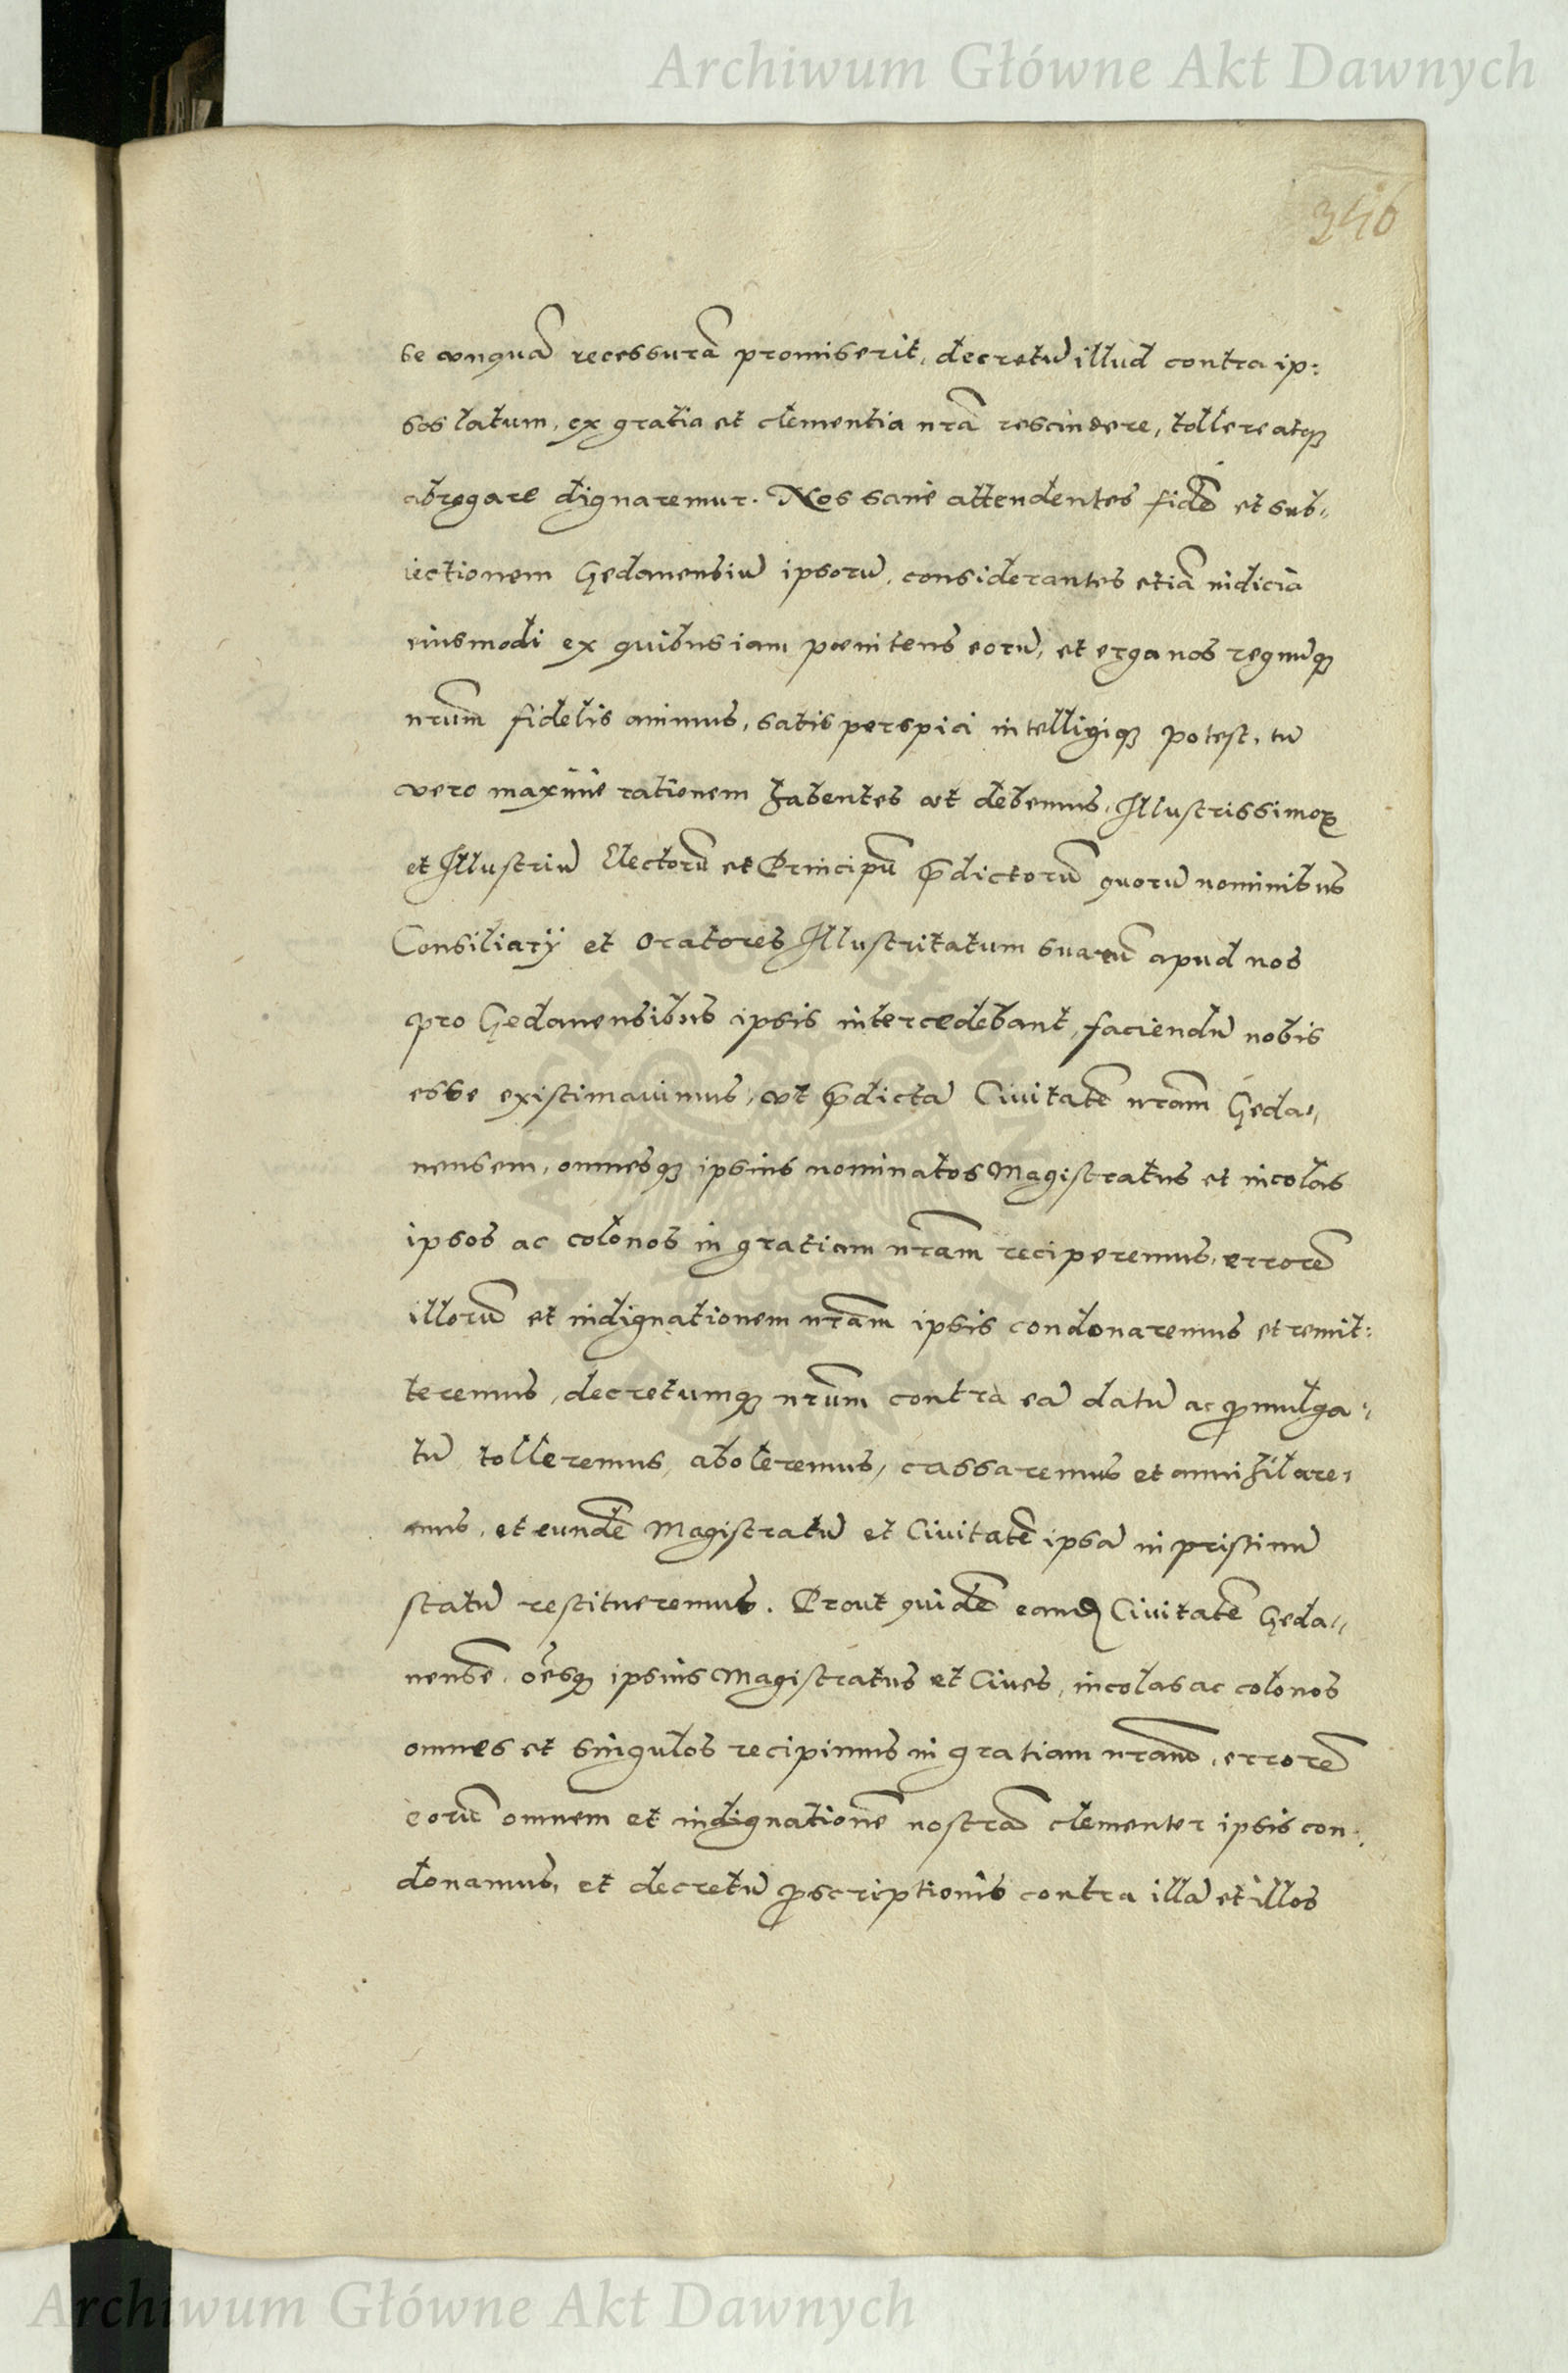 Archiwum Główne Akt Dawnych
346
se vnquā recessurā promiserit, decretū illud contra ip:
sos latum, ex gratia et clementia nrā rescindere, tollere atq;
abrogare dignaremur. Nos sane attendentes fidē et sub=
iectionem Gędanensiū ipsorū, considerantes etiā indicia
eiusmodi ex quibus iam pœnitens eorū, et erga nos regnūq;
nrum fidelis animus, satis perspici intelligiq; potest, tū
vero maxime rationem habentes vt debemus, Illustrissimoꝝ
et Illustriū Electorū et Principū p̄dictorū quorū nominibus
Consiliarÿ et Oratores Illustritatum suarū apud nos
pro Gędanensibus ipsis intercedebant, faciendū nobis
esse existimauimus, vt p̄dictā Ciuitatē nram Gęda=
nensem, omnesq; ipsius nominatos Magistratus et incolas
ipsos ac colonos in gratiam nram reciperemus, errorē
illorū et indignationem nram ipsis condonaremus et remit:
teremus, decretumq; nrum contra eā datū ac ꝓmulga=
tū tolleremus, aboleremus, cassaremus et annihilare=
mus, et eundē Magistratū et Ciuitatē ipsā in pristinū
statū restitueremus. Prout quidē eamd Ciuitatē Gęda=
nensē, oēsq; ipsius Magistratus et Ciues, incolas ac colonos
omnes et singulos recipimus in gratiam nram, errorē
eorū omnem et indignationē nostrā clementer ipsis con=
donamus, et decretū ꝓscriptionis contra illā et illos
Archiwum Główne Akt Dawnych